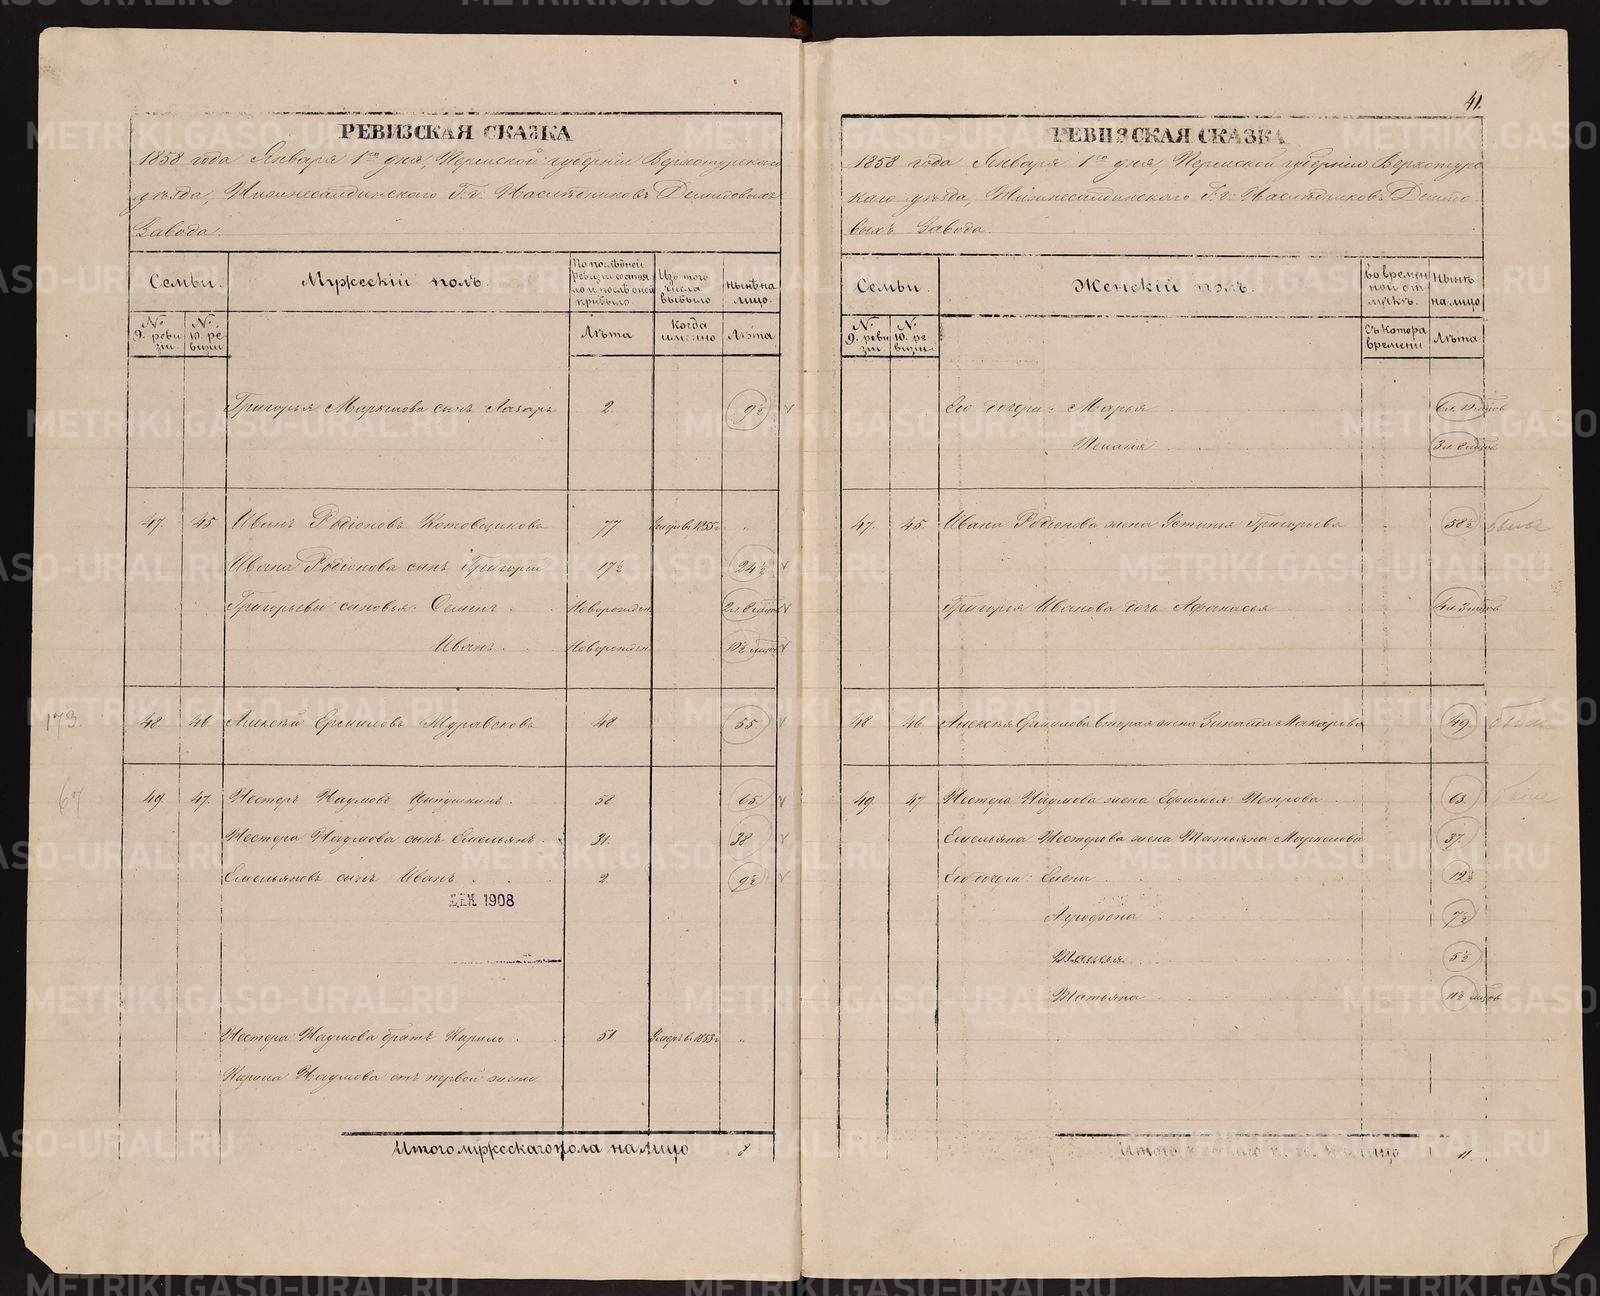 41.
РЕВИЗСКАЯ СКАЗКА
1858 года Января 1го дня, Пермской губернiи Верхотурскаго
уѣзда, Нижнесалдинскаго Г.г. Наслѣдниковъ Демидовыхъ
Завода.
Семьи.
Мужескiй полъ.
По послѣдней ревизiи состояло и послѣ оной прибыло.
Изъ того числа выбыло
Нынѣ на лицо.
№ 9. ревизiи
№ 10. ревизiи
Лѣта
Когда именно
Лѣта
Григорья Маркелова сынъ Лазарь 2. 9½
47. 45 Иванъ Родiоновъ Котовщиковъ 77 Умеръ въ 1855 г. „
Ивана Родiонова сынъ Григорiй 17½ 24½
Григорьевы сыновья: Семенъ Новорожден. 2 л. 8 мѣсяц
Иванъ Новорожден. 10½ мѣсяц
173.
48. 46 Алексѣй Ермиловъ Журавлевъ 48 55
67
49 47. Нестеръ Наумовъ 58 65
Нестера Наумова сынъ Емельянъ 31. 38
Емельяновъ сынъ Иванъ 2. 9½
ДЕК 1908
Нестера Наумова братъ Кирило 51 Умеръ въ 1853 г. „
Кирила Наумова отъ первой жены
Итого мужескаго пола на лицо 8
РЕВИЗСКАЯ СКАЗКА
1858 года Января 1го дня, Пермской губернiи Верхотурс
каго уѣзда, Нижнесалдинскаго Г.г. Наслѣдниковъ Демидо
выхъ Завода
Семьи.
Женскiй полъ.
Во временной отлучкѣ.
Нынѣ на лицо
№ 9. ревизiи
№ 10. ревизiи
Съ котора времени
Лѣта
Его дочери: Марья
3 л. 8 мѣсяцов
47. 45 Ивана Родiонова жена Устинья Григорьева 58½
Григорья Иванова дочь Афанасья 4 л. 3 мѣсяцов
48 46. Алексѣя Ермилова вторая жена Зинаида Макарова 49
49. 47 Нестера Наумова жена Ефимья Петрова 63.
Емельяна Нестерова жена Татьяна Маркелова 37.
Его дочери: Елена 12½
Агрофена 7½
5½
Татьяна 11½ мѣсяцов
Итого женскаго пола на лицо 11.
METRIKI.GASO-URAL.RU